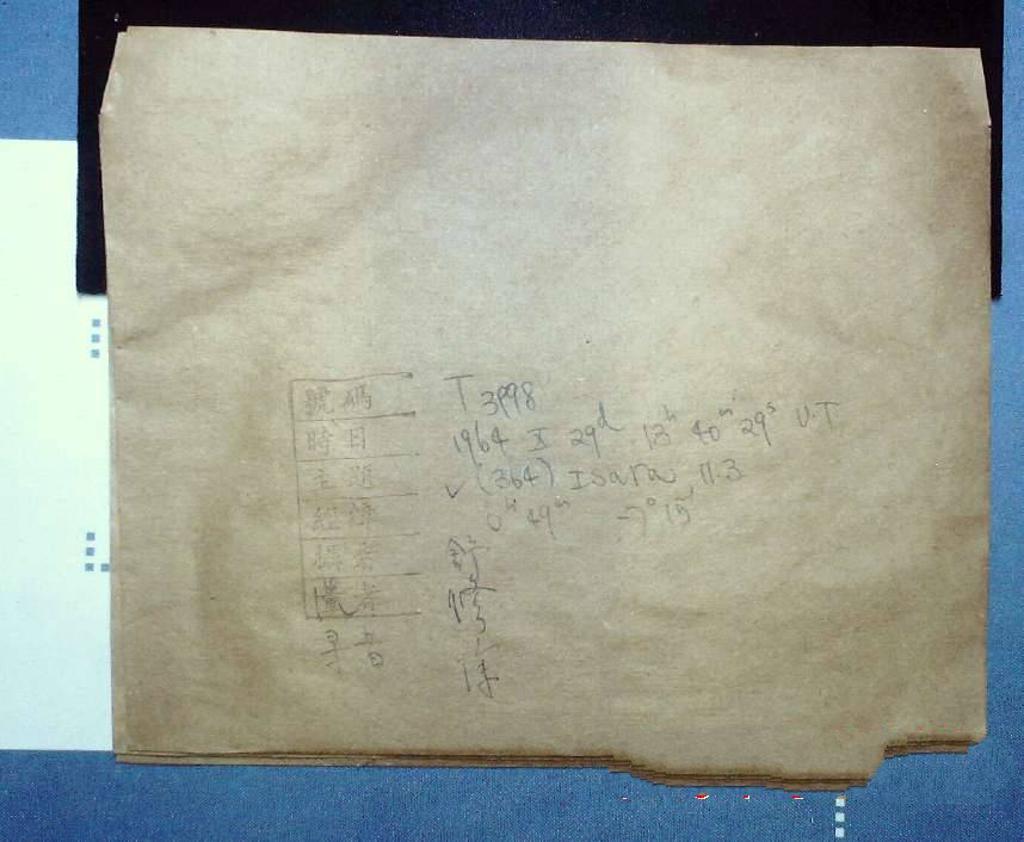 號碼 T 3998
時日 1964 X 29d 13h 40m 29s U.T
主題 ✓ (364) Isara 11.3
經緯 0h 49m -7° 15'
攝者
者
寻者